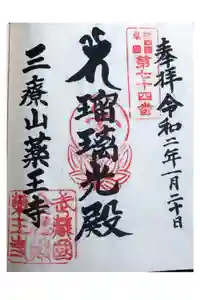 奉拝 令和二年一月二十日
第七十四番
瑠璃光殿
三療山薬王寺
武蔵国